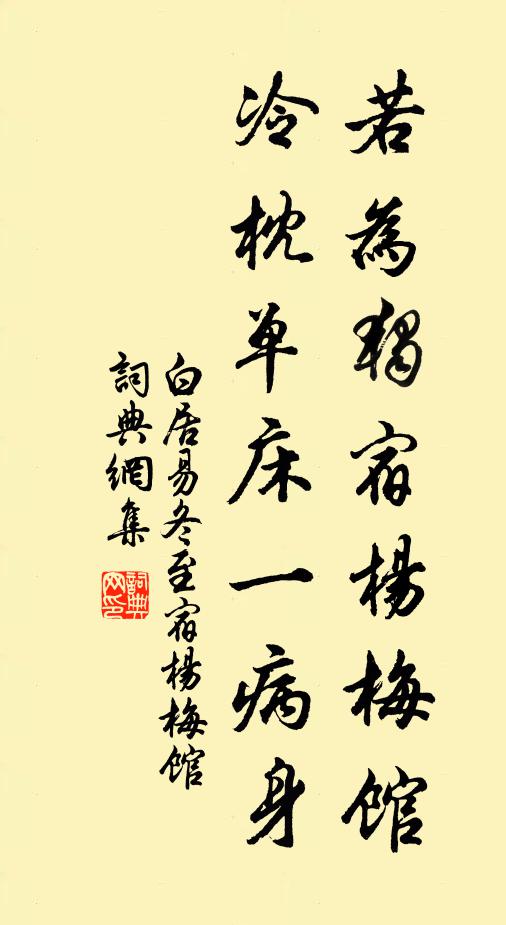 若為獨宿楊梅館
冷枕单床一病身
白居易冬至宿楊梅館
詞典網集
詞典网印